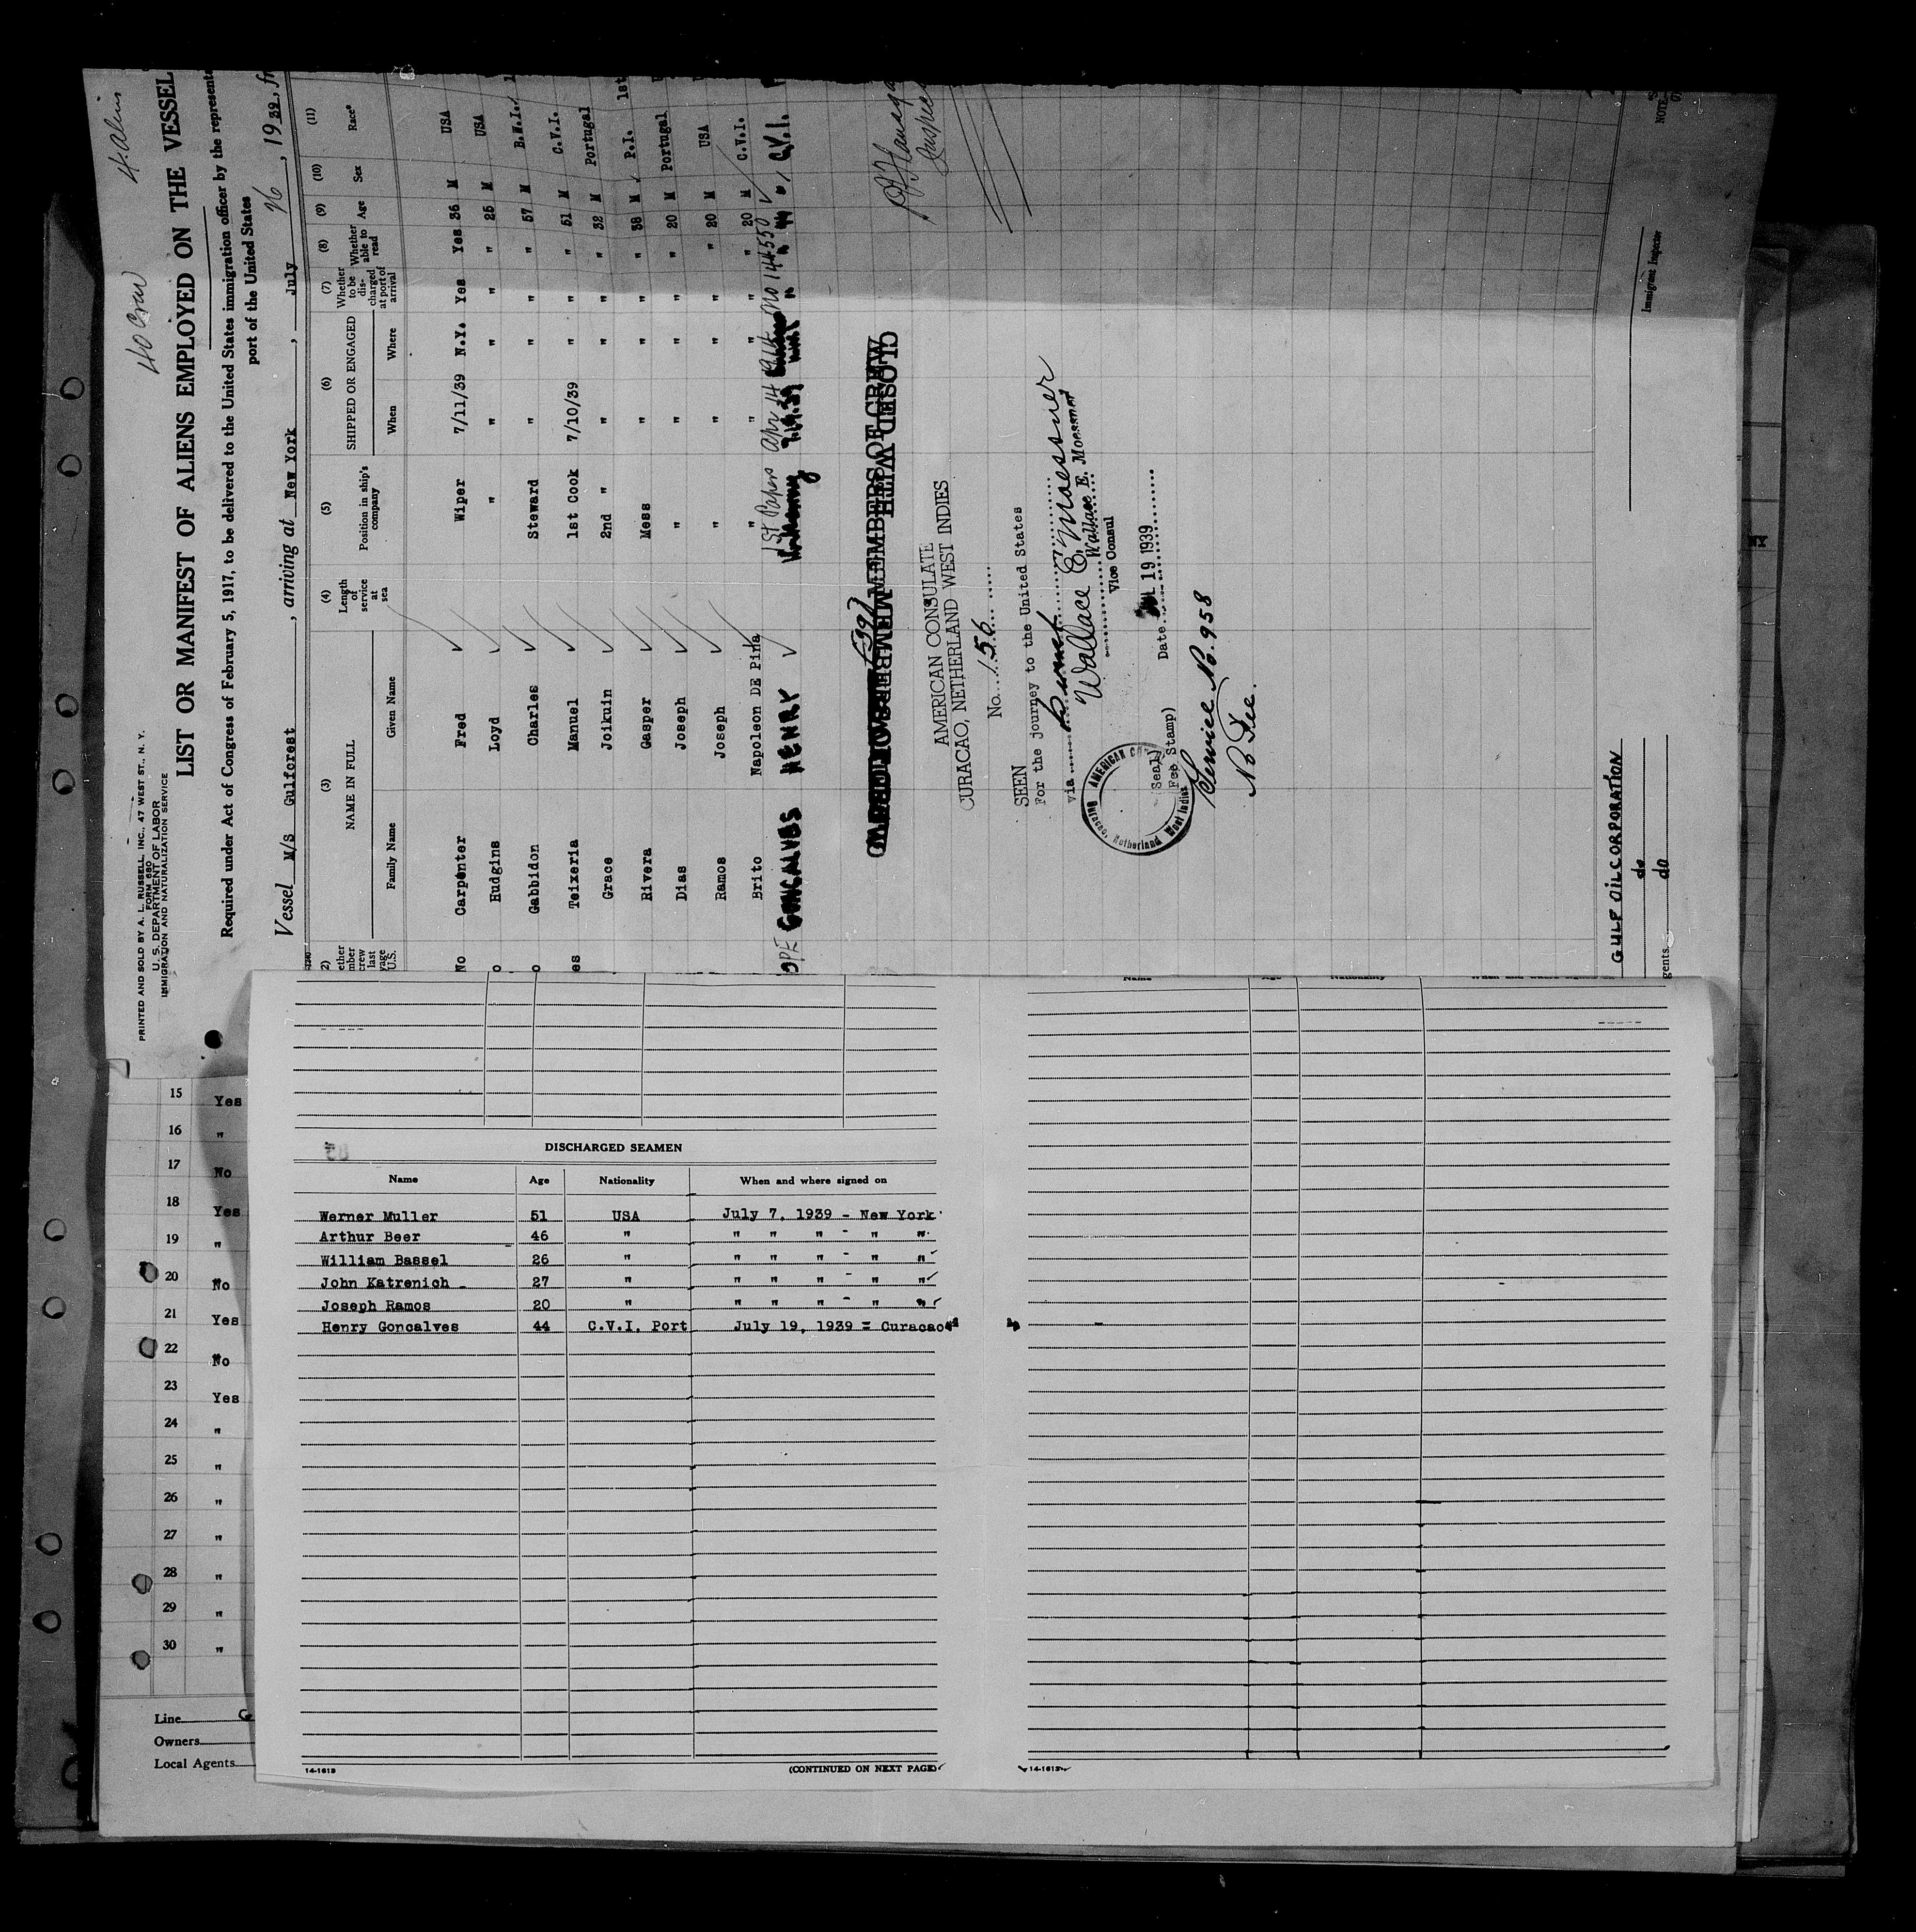 40 Crew
4 Aliens
PRINTED AND SOLD BY A. L. RUSSELL, INC., 47 WEST ST., N. Y.
FORM 680
U. S. DEPARTMENT OF LABOR
IMMIGRATION AND NATURALIZATION SERVICE
LIST OR MANIFEST OF ALIENS EMPLOYED ON THE VESSEL
Required under Act of Congress of February 5, 1917, to be delivered to the United States immigration officer by the represent
port of the United States
Vessel M/S Gulfcrest, arriving at New York, July 26, 1939, fr
(3) (4) (5) (6) (7) (8) (9) (10) (11)
NAME IN FULL Length of service at sea Position in ship's company SHIPPED OR ENGAGED Whether to be discharged at port of arrival Whether able to read Age Sex Race*
Family Name Given Name When Where
No Carpenter Fred Wiper 7/11/39 N.Y. Yes Yes 36 M USA
o Hudgins Loyd " " " " " 25 M USA
o Gabbidon Charles Steward " " " " 57 M B.W.I.
es Teixeria Manuel 1st Cook 7/10/39 " " " 51 M C.V.I.
Grace Joikuin 2nd " " " " " 32 M Portugal
Rivera Gasper Mess " " " " 38 M P.I. 1st
Dias Joseph " " " " " 20 M Portugal
Ramos Joseph " " " " " 20 M USA
Brito Napoleon DE Pina " " " " " 20 M C.V.I.
1st Papers Apr 14 No 144550
GONCALVES HENRY C.V.I.
CLOSED WITH MEMBERS OF CREW
AMERICAN CONSULATE
CURACAO, NETHERLAND WEST INDIES
No. 156
SEEN
For the journey to the United States
via
Wallace E. Moessner
Wallace E. Moessner
Vice Consul
(Seal)
Fee Stamp)
Date JUL 19 1939
AMERICAN CO
Curacao, Netherland West Indies
Service No. 958
No Fee.
Inspec
Immigrant Inspector
NOTE
GULF OIL CORPORATION
do
gents do
15 Yes
16 "
17 No
18 Yes
19 "
20 No
21 Yes
22 No
23 Yes
24 "
25 "
26 "
27 "
28 "
29 "
30 "
Line
Owners
Local Agents
DISCHARGED SEAMEN
Name Age Nationality When and where signed on
Werner Muller 51 USA July 7, 1939 - New York
Arthur Beer 46 " " " " - " "
William Bassel 26 " " " " - " "
John Katrenich 27 " " " " - " "
Joseph Ramos 20 " " " " - " "
Henry Goncalves 44 C.V.I. Port July 19, 1939 = Curacao
14-1613
(CONTINUED ON NEXT PAGE)
Name Age Nationality When and where signed
14-1613